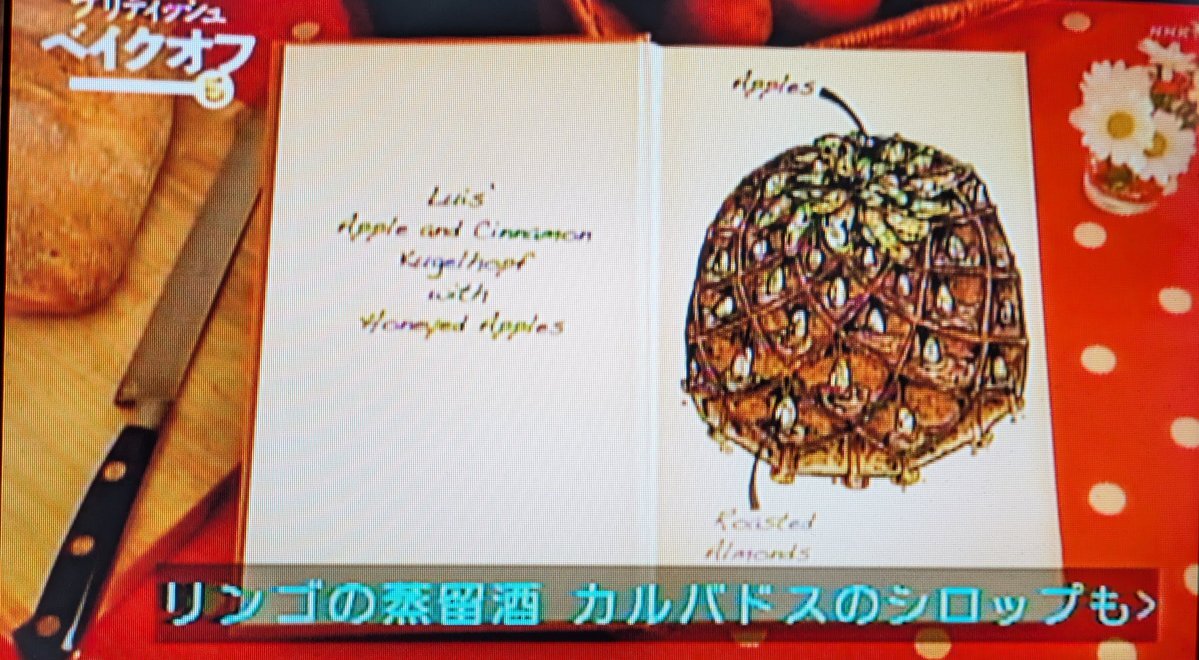 ブリティッシュ
ベイクオフ
5
NHK
Apples
Luis'
Apple and Cinnamon
Kugelhopf
with
Honeyed Apples
Roasted
Almonds
リンゴの蒸留酒 カルバドスのシロップも>